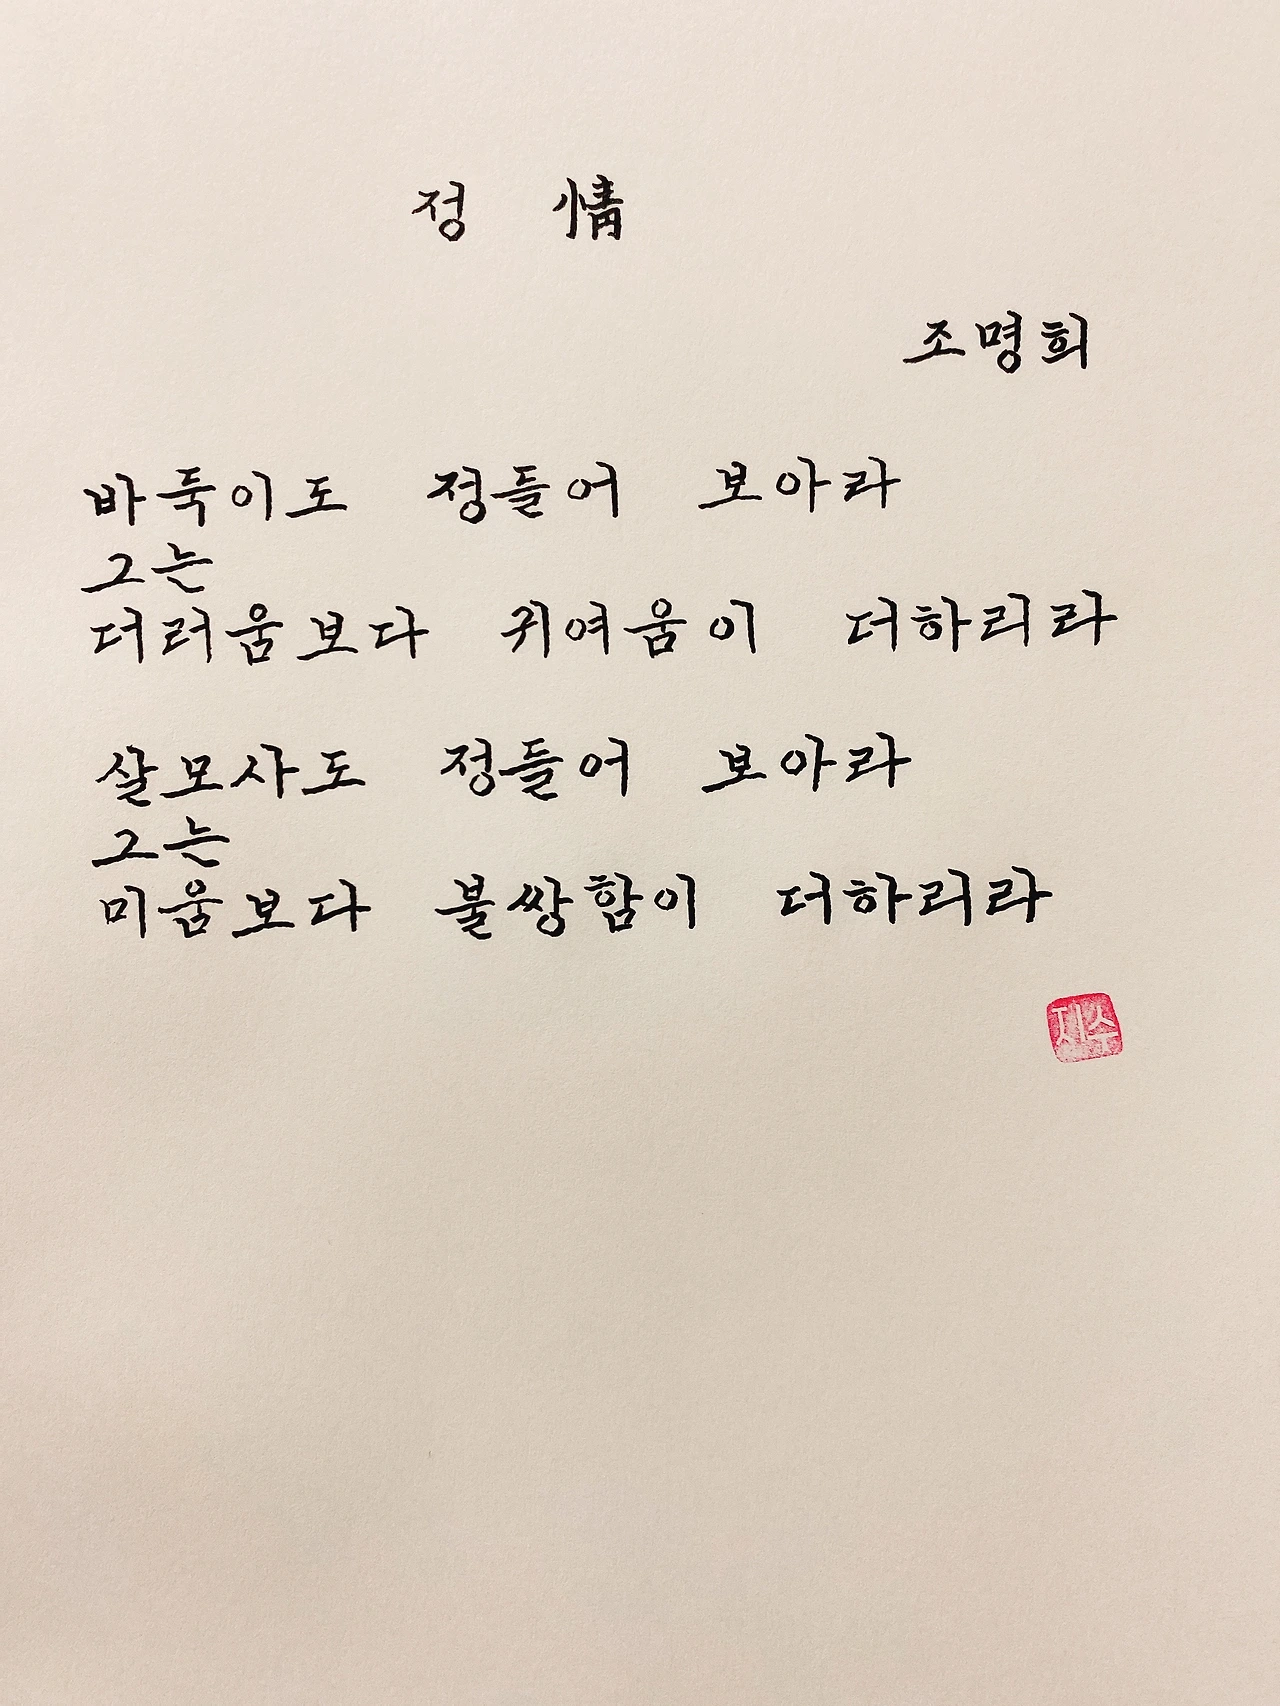 정 情
조명희
바둑이도 정들어 보아라
그는
더러움보다 귀여움이 더하리라
살모사도 정들어 보아라
그는
미움보다 불쌍함이 더하리라